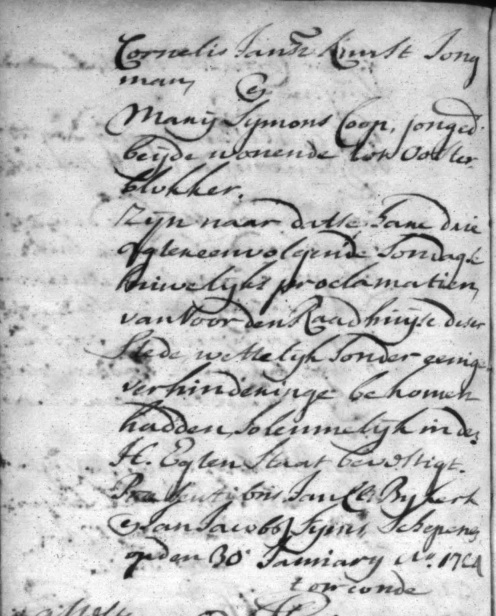 Cornelis Jansz Kunst Jong
man,
en
Marij Symons Coop, jonged:
beijde wonende tot Ooster
blokker.
Zijn naar datse hare drie
agtereenvolgende Sondagse
huwelijks proclamatien,
van voor den Raadhuijse deser
Stede, wettelijk Sonder eenige
verhinderinge bekomen
hadden, Solemnelijk in den
H. Egten Staat bevestigt.
Presentibus, Jan
en Jan Jacobsz Schepens
op den 30 January Ao